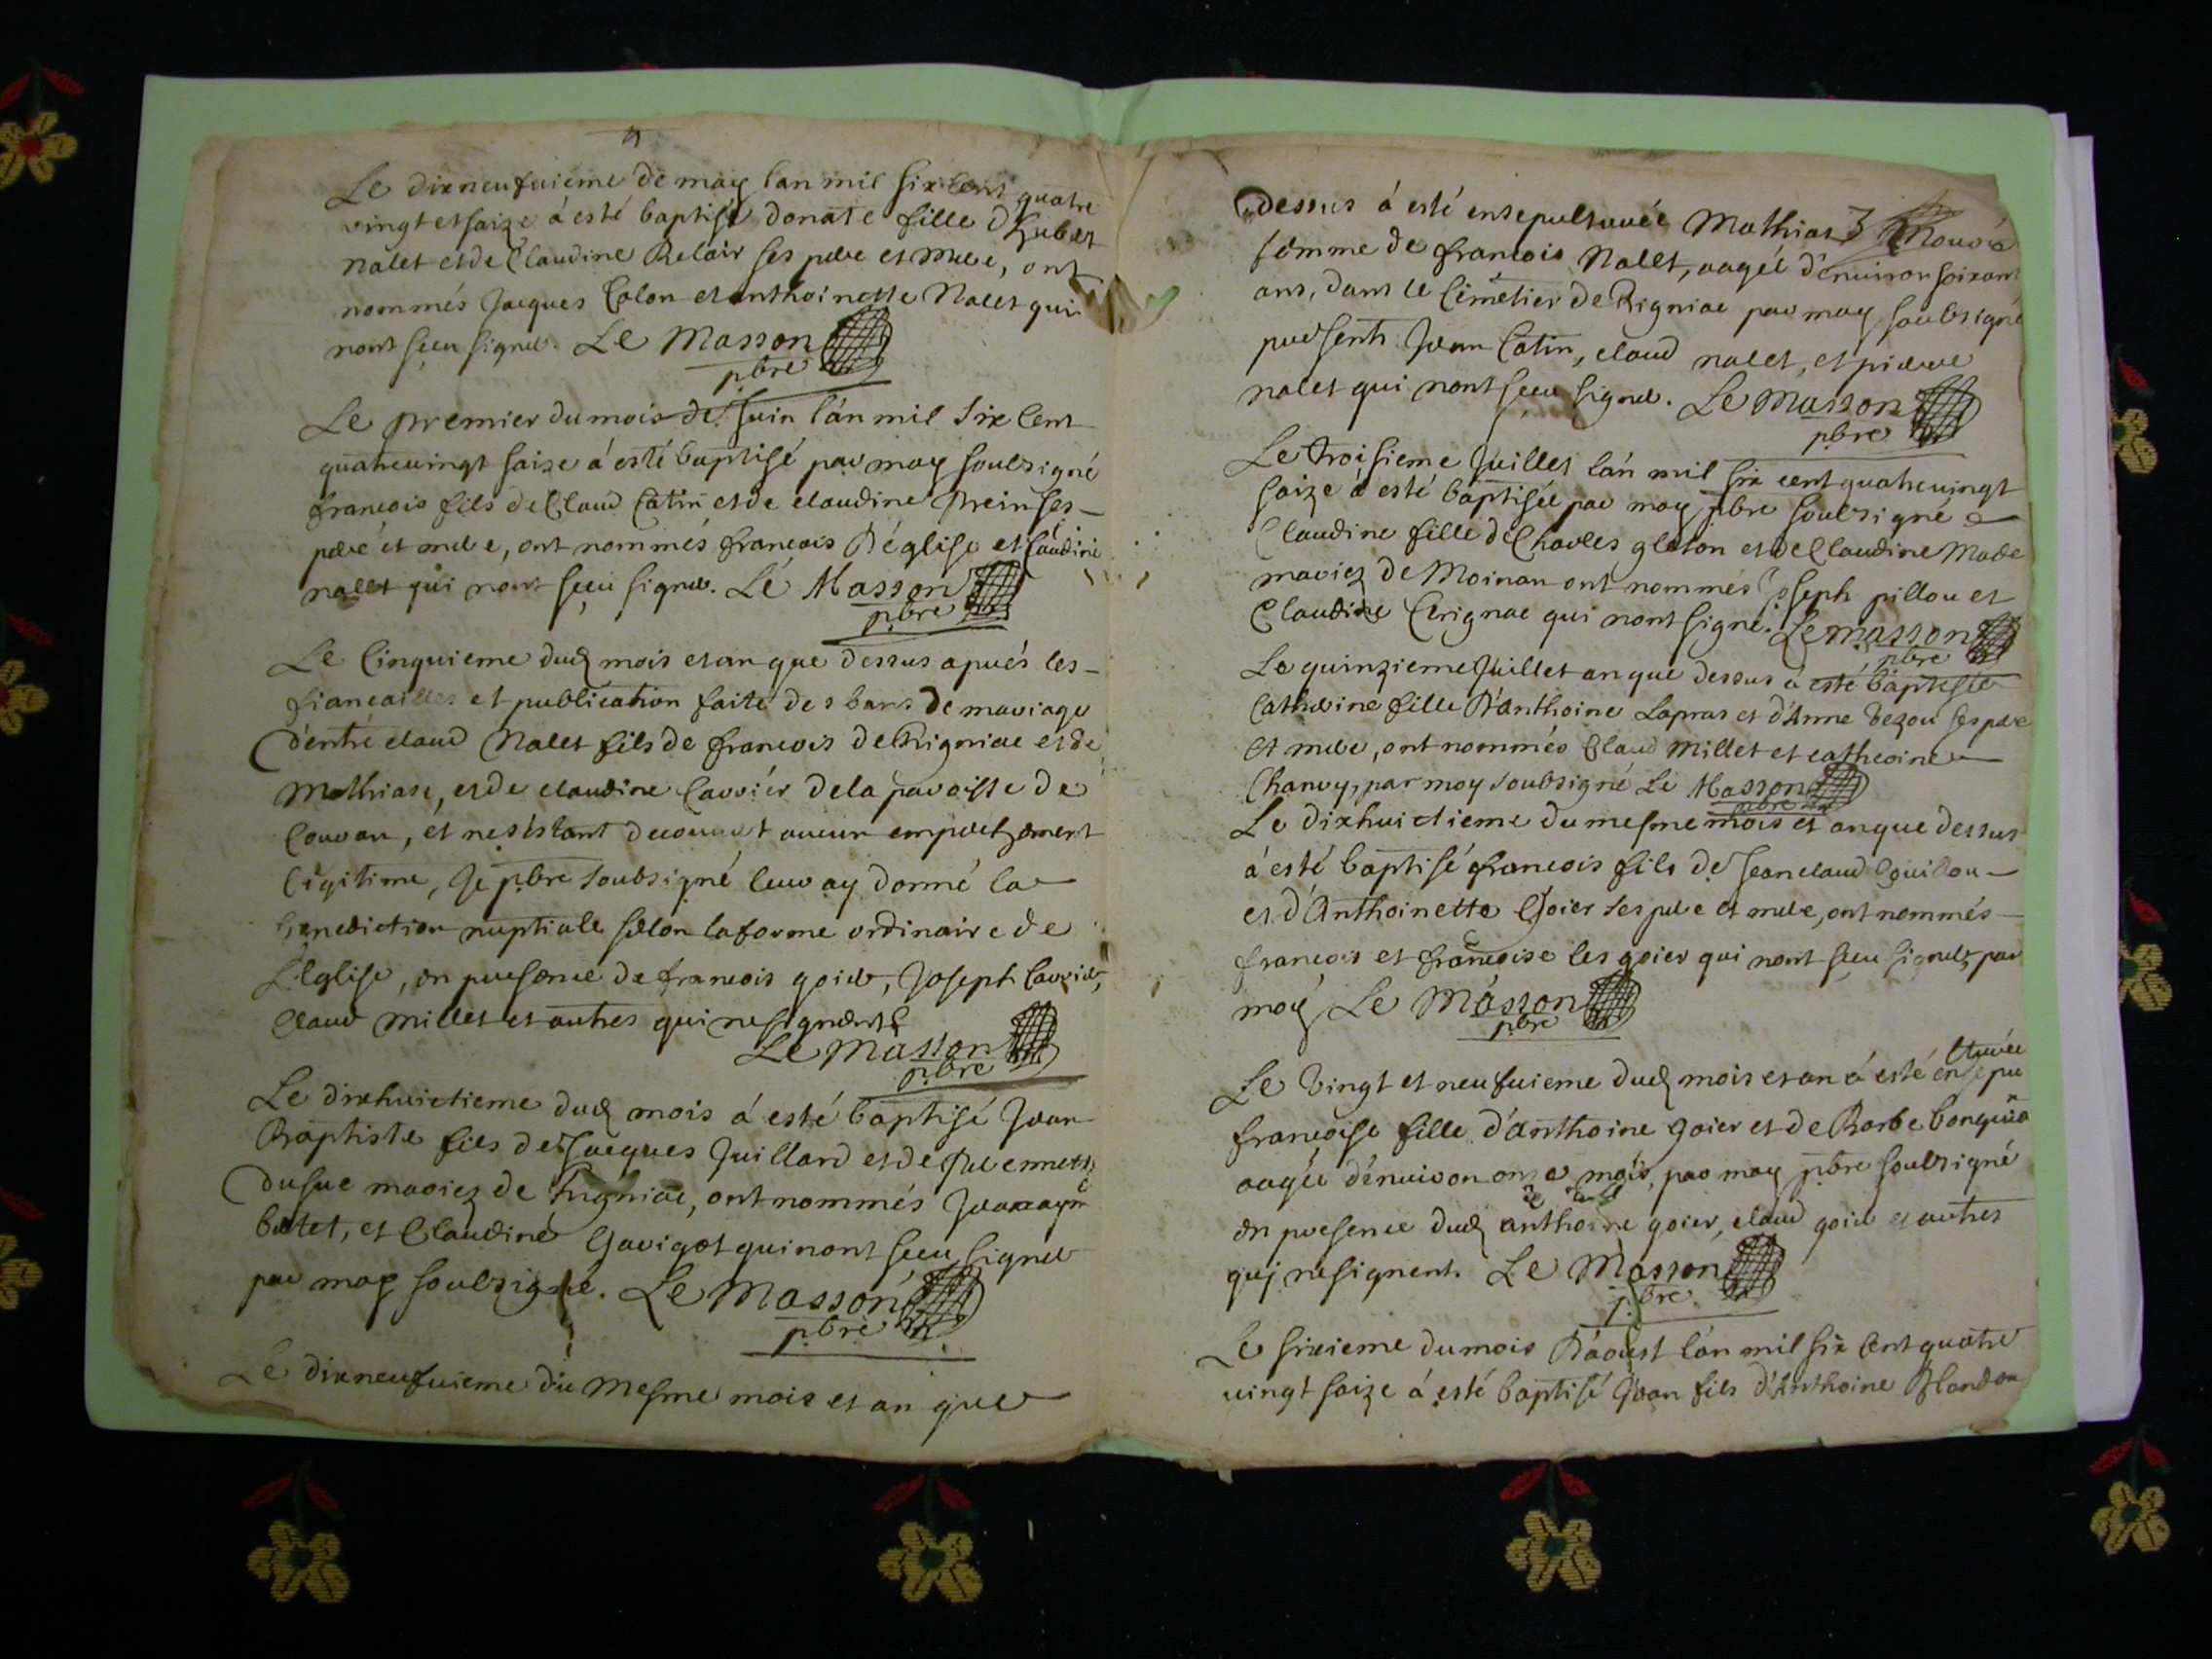 Le dixneufuieme de may lan mil six cent quatre
vingt et saize á esté baptisé donate fille d'hubert
Nalet et de Claudine Relair ses pere et mere, ont
nommés Jacques Colon et anthoinette Nalet qui
nont sçeu signer. Le Masson
pbre
Le premier du mois de Juin l'án mil six Cent
quatreuingt saize á esté baptisé par moy soubsigné
francois fils de Claud Catin et de claudine prein ses
pere et mere, ont nommés francois Déglise et Claudine
nallet qui nont sçeu signer. Le Masson
pbre
Le Cinquieme dud mois et an que dessus apués les
fiancailles et publication faite des bans de mariage
dentre claud Nalet fils de francois de Rigniac et de
Mathiase, et de claudine Carrier de la paroisse de
Couzan, et nesestant decouuert aucun empeschement
légitime, Je pbre soubsigné leur ay donné la
benediction nuptiale selon la forme ordinaire de
L'Eglise, en presence de francois goier, Joseph Carrier,
Claud Millet et autres qui ne signent
Le Masson
pbre
Le dixhuictieme dud mois á esté baptisé Jean
Baptiste fils de Jacques Juillard et de pierrenette
Dusue mariez de Rigniac, ont nommés
batet, et Claudine Gavigot qui nont sçeu signer
par moy soubsigné. Le Masson
pbre
Le dixneufuieme du Mesme mois et an que
dessus á esté ensepulturée Mathias
femme de francois Nallet, aagée d'enuiron soixant
ans, dans le Cimetier de Rigniac par moy soubsigné
presents Jean Catin, claud nalet, et pierre
nalet qui nont sçeu signer. Le Masson
pbre
Le troisieme Juillet lán mil six cent quatreuingt
saize á esté baptisée par moy pbre soubsigné
Claudine fille de Charles gleton et de Claudine Made
mariez de Moinan ont nommés Joseph pillou et
Claudine Cerignac qui nont signé. Le Masson
pbre
Le quinzieme Juillet an que dessus á esté baptisée
Catherine fille D'Anthoine Lapras et d'Anne Vezou ses pere
et mere, ont nommés Claud Millet et catherine
Charvy, par moy soubsigné Le Masson
pbre
Le dixhuictieme du mesme mois et an que dessus
á esté baptisé francois fils de Jean claud Gouillou
et d'Anthoinette Goier ses pere et mere, ont nommés
francois et francoise les goier qui nont sçeu signer, par
moy Le Masson
pbre
Le Vingt et neufuieme dud mois et an á esté ensepulturée
francoise fille d'anthoine goier et de Barbe
aagée d'enuiron onze mois, par moy pbre soubsigné
en presence dud anthoine goier, claud goier et autres
qui ne signent. Le Masson
pbre
Le sixieme du mois D'aoust l'an mil six Cent quatre
uingt saize á esté baptisé Jean fils d'Anthoine Blandon